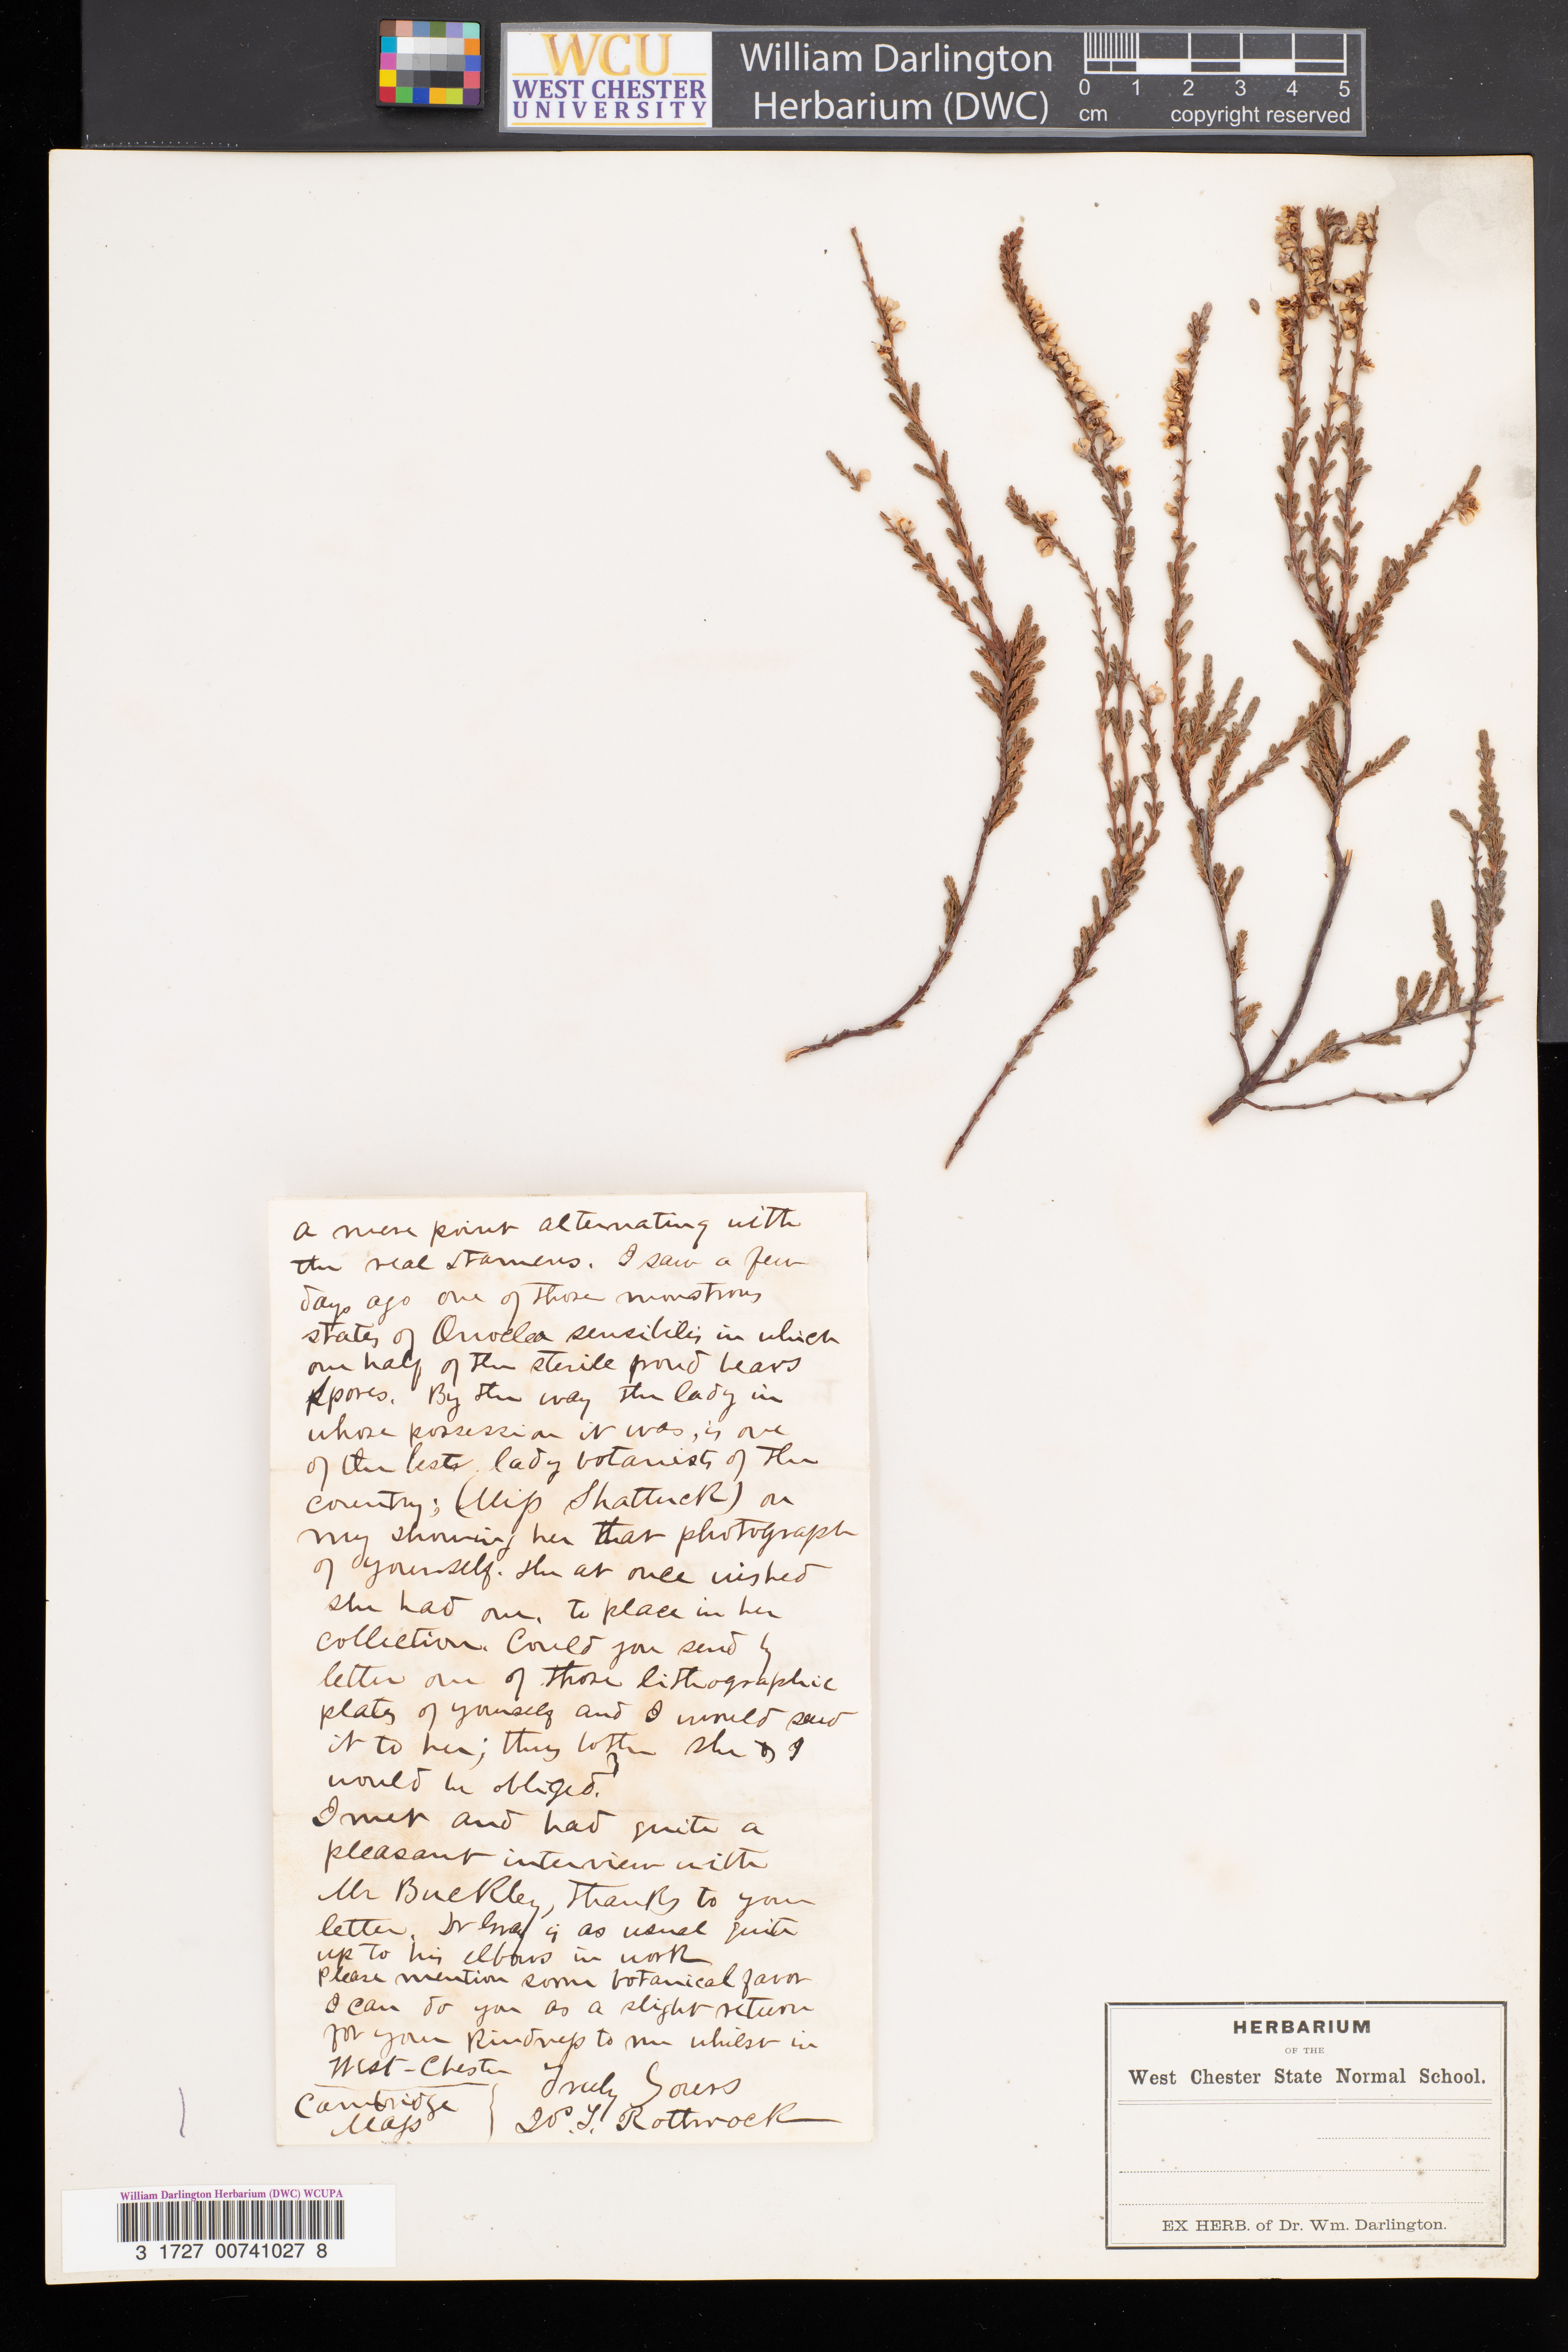 WCU
WEST CHESTER
UNIVERSITY
William Darlington
Herbarium (DWC)
0 1 2 3 4 5
cm copyright reserved
a mere point alternating with
the real stamens. I saw a few
days ago one of those monstrous
states of Onoclea sensibilis in which
one half of the sterile frond bears
spores. By the way the lady in
whose possession it was, is one
of the best lady botanists of the
country; (Miss Shattuck) on
my showing her that photograph
of yourself. she at once wished
she had one, to place in her
collection. Could you send by
letter one of those lithographic
plates of yourself and I would send
it to her; thus both she & I
would be obliged.
I met and had quite a
pleasant interview with
Mr Buckley, thanks to your
letter. Dr Gray is as usual quite
up to his elbows in work
Please mention some botanical favor
I can do you as a slight return
for your kindness to me whilst in
West-Chester
Truly Yours
Cambridge
Mass
J. T. Rothrock
HERBARIUM
OF THE
West Chester State Normal School.
EX HERB. of Dr. Wm. Darlington.
William Darlington Herbarium (DWC) WCUPA
3 1727 00741027 8